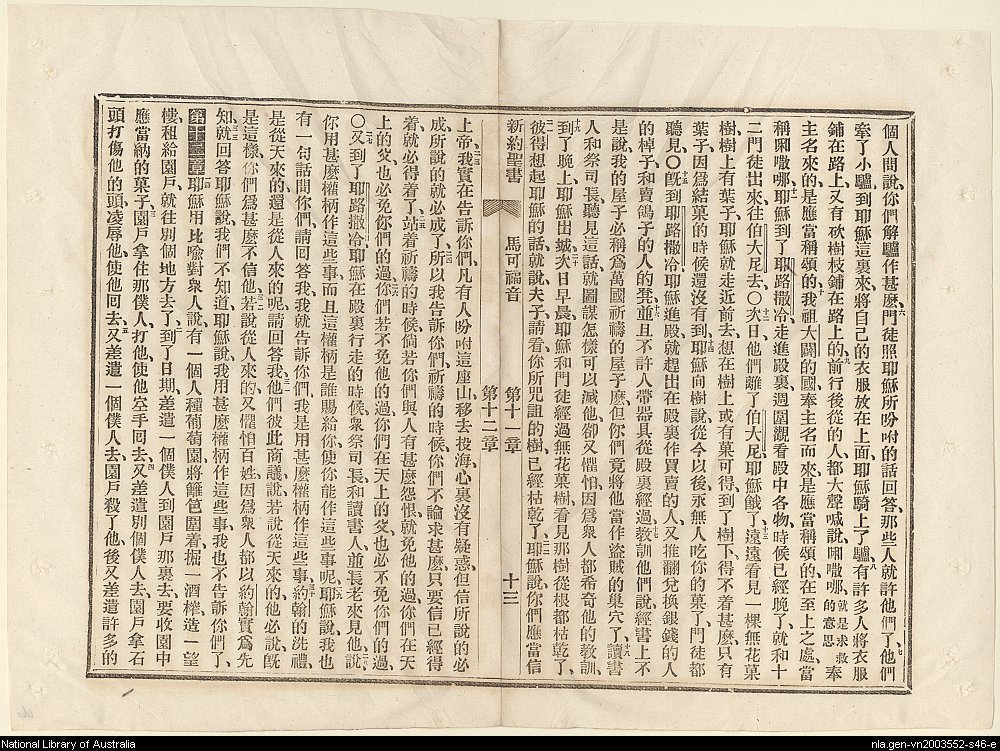 個人問說、你們解驢作甚麽、六門徒照耶穌所吩咐的話回答、那些人就許他們了、七他們
牽了小驢到耶穌這裏來、將自己的衣服放在上面、耶穌騎上了驢、八有許多人將衣服
鋪在路上、又有砍樹枝鋪在路上的、九前行後從的人、都大聲喊說、㗂㗂哪、就是求救的意思奉
主名來的、是應當稱頌的、十我祖大闢的國、奉主名而來、是應當稱頌的、在至上之處當
稱㗂㗂哪、十一耶穌到了耶路撒冷、走進殿裏、週圍觀看殿中各物、時候已經晚了、就和十
二門徒出來、往伯大尼去、〇十二次日、他們離了伯大尼、耶穌餓了、十三遠遠看見一棵無花菓
樹、樹上有葉子、耶穌就走近前去、想在樹上或有菓可得、到了樹下、得不着甚麽、只有
葉子、因爲結菓的時候還沒有到、十四耶穌向樹說、從今以後、永無人吃你的菓了、門徒都
聽見、〇十五旣到耶路撒冷、耶穌進殿、就趕出在殿裏作買賣的人、又推翻兌換銀錢的人
的棹子、和賣鴿子的人的凳、十六並且不許人帶器具從殿裏經過、十七教訓他們說、經書上不
是說、我的屋子、必稱爲萬國祈禱的屋子麽、但你們竟將他當作盜賊的巢穴了、十八讀書
人和祭司長聽見這話、就圖謀怎樣可以滅他、卻又懼怕、因爲衆人都希奇他的敎訓、
十九到了晚上、耶穌出城、二十次日早晨、耶穌和門徒經過無花菓樹、看見那樹從根都枯乾了、
二一彼得想起耶穌的話、就說、夫子請看、你所咒詛的樹、已經枯乾了、二二耶穌說、你們應當信
新約聖書 馬可福音 第十一章 第十二章 十三
上帝、二三我實在告訴你們、凡有人吩咐這座山、移去投海、心裏沒有疑惑、但信所說的必
成、所說的就必成了、二四所以我告訴你們、祈禱的時候、你們不論求甚麽、只要信已經得
着、就必得着了、二五站着祈禱的時候、倘若你們與人有甚麽怨恨、就免他的過、你們在天
上的父、也必免你們的過、二六你們若不免他的過、你們在天上的父、也必不免你們的過、
〇二七又到了耶路撒冷、耶穌在殿裏行走的時候、衆祭司長和讀書人並長老來見他、二八說
你用甚麽權柄作這些事、而且這權柄是誰賜給你、使你能作這些事呢、二九耶穌說、我也
有一句話問你們、請回答我、我就告訴你們、我是用甚麽權柄作這些事、三十約翰的洗禮、
是從天來的、還是從人來的呢、請回答我、三一他們彼此商議說、若說從天來的、他必說、旣
是這樣、你們爲甚麽不信他、三二若說從人來的、又懼怕百姓、因爲衆人都以約翰實爲先
知、三三就回答耶穌說、我們不知道、耶穌說、我用甚麽權柄作這些事、我也不告訴你們了、
第十二章 一耶穌用比喻對衆人說、有一個人種葡萄園、將籬笆圍着、掘一酒榨、造一望
樓、租給園戶、就往別個地方去了、二到了日期、差遣一個僕人到園戶那裏去、要收園中
應當納的菓子、三園戶拿住那僕人、打他、使他空手回去、四又差遣別個僕人去、園戶拿石
頭打傷他的頭、凌辱他、使他回去、五又差遣一個僕人去、園戶殺了他、後又差遣許多的
National Library of Australia
nla.gen-vn2003552-s46-e